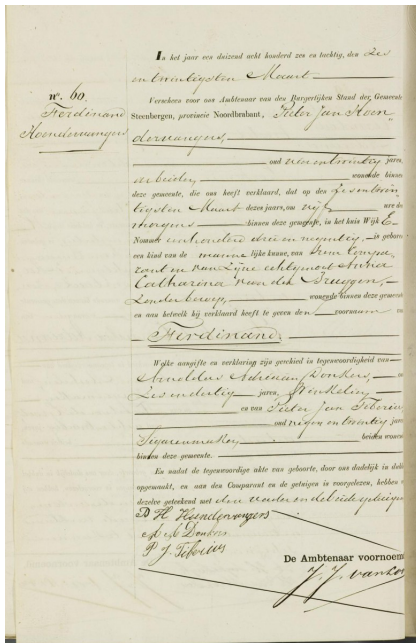 In het jaar een duizend acht honderd zes en tachtig, den zes
en twintigsten Maart
n°. 60.
Ferdinand
Hoendervangers
Verscheen voor ons Ambtenaar van den Burgerlijken Stand der Gemeente
Steenbergen, provincie Noordbrabant, Pieter Jan Hoen
dervangers,
oud vier en twintig jaren,
arbeider, wonende binnen
deze gemeente, die ons heeft verklaard, dat op den zes en twin
tigsten Maart dezes jaars, om vijf ure des
morgens binnen deze gemeente, in het huis Wijk E
Nommer een honderd drie en negentig, is geboren
een kind van de mannelijke kunne, van hem Compa
rant en van zijne echtgenoot Anna
Catharina van der Bruggen,
zonder beroep, wonende binnen deze gemeente
en aan hetwelk hij verklaard heeft te geven den voornaam
Ferdinand.
Welke aangifte en verklaring zijn geschied in tegenwoordigheid van
Arnoldus Adriaan Donkers,
zes en dertig jaren, Winkelier
en van Pieter Jan Tiberius
oud negen en twintig jaren
Sigarenmaker, beiden wonende
binnen deze gemeente.
En is van de tegenwoordige akte van geboorte, door ons dadelijk in dubbel
opgemaakt, en aan den Comparant en de getuigen is voorgelezen, hebben
dezelve geteekend met den vader en de beide getuigen
P H Hoendervangers
A A Donkers
P J Tiberius
De Ambtenaar voornoemd
J. J. van